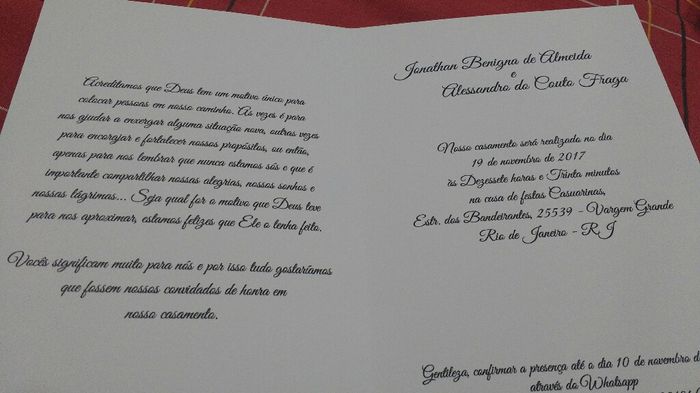 Acreditamos que Deus tem um motivo único para
colocar pessoas em nosso caminho. Às vezes é para
nos ajudar a enxergar alguma situação nova, outras vezes
para encorajar e fortalecer nossos propósitos, ou então,
apenas para nos lembrar que nunca estamos sós e que é
importante compartilhar nossas alegrias, nossos sonhos e
nossas lágrimas... Seja qual for o motivo que Deus teve
para nos aproximar, estamos felizes que Ele o tenha feito.
Vocês significam muito para nós e por isso tudo gostaríamos
que fossem nossos convidados de honra em
nosso casamento.
Jonathan Benigna de Almeida
e
Alessandro do Couto Fraga
Nosso casamento será realizado no dia
19 de novembro de 2017
às Dezessete horas e Trinta minutos
na casa de festas Casuarinas,
Estr. dos Bandeirantes, 25539 - Vargem Grande
Rio de Janeiro - RJ
Gentileza, confirmar a presença até o dia 10 de novembro
através do Whatsapp